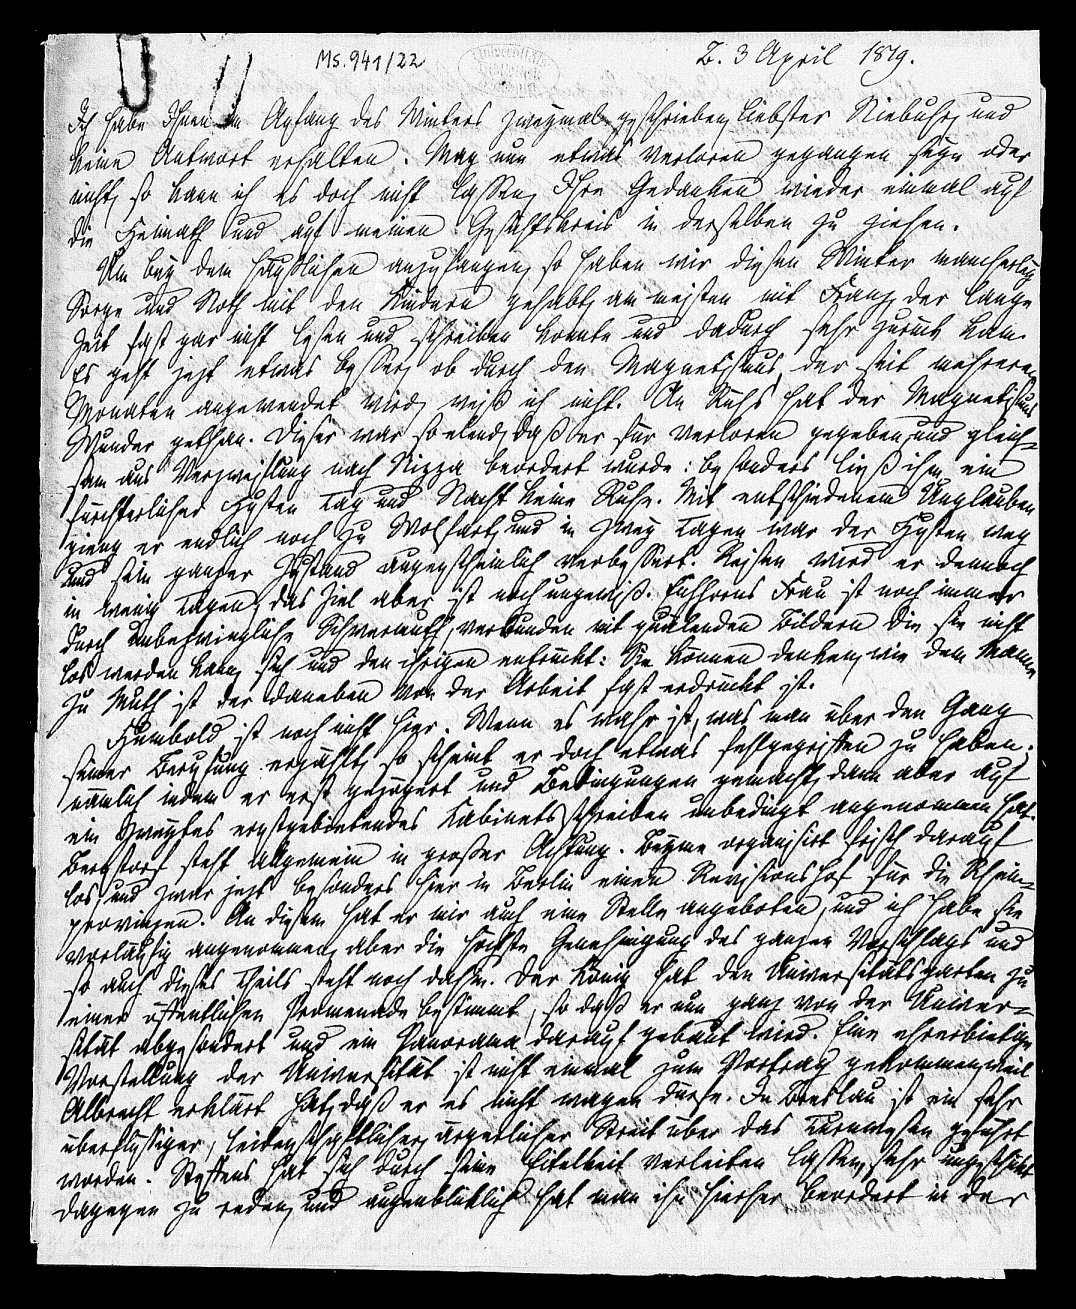 Ms. 941/22
B. 3 April 1819.
Ich habe Ihnen im Anfang des Winters zweymal geschrieben, liebster Niebuhr, und
keine Antwort erhalten. Mag nun etwas verloren gegangen seyn oder
nicht, so kann ich es doch nicht lassen, Ihre Gedanken wieder einmal auf
die Heimath und auf meinen Gesichtskreis in derselben zu ziehen.
Um bey dem häuslichen anzufangen, so haben wir diesen Winter mancherley
Sorge und Noth mit den Kindern gehabt, am meisten mit Franz, der lange
Zeit fast gar nicht lesen und schreiben konnte und dadurch sehr zurück kam.
Es geht jezt etwas besser, ob durch den Magnetismus, der seit mehreren
Monaten angewendet wird, weiß ich nicht. An Rühs hat der Magnetismus
Wunder gethan. Dieser war so elend, daß er für verloren gegeben und gleich-
sam aus Verzweiflung nach Nizza beordert wurde: besonders ließ ihm ein
fürchterlicher Husten Tag und Nacht keine Ruhe. Mit entschiedenem Unglauben
gieng er endlich noch zu Wolfart, und in zwey Tagen war der Husten weg
und sein ganzer Zustand augenscheinlich verbessert. Reisen wird er dennoch
in wenig Tagen, das Ziel aber ist noch ungewiß. Eichhorns Frau ist noch immer
durch unbezwingliche Schwermuth, verbunden mit quälenden Bildern die sie nicht
los werden kann, sich und den ihrigen entrückt: Sie können denken, wie dem Mann
zu Muth ist der daneben von der Arbeit fast erdrückt ist.
Humbold ist noch nicht hier. Wenn es wahr ist, was man über den Gang
seiner Berufung erzählt, so scheint er doch etwas fehlgegriffen zu haben;
nämlich indem er erst gezögert und Bedingungen gemacht, dann aber auf
ein zweytes ernstgebietendes Kabinetsschreiben unbedingt angenommen hat.
Bernstorf steht allgemein in großer Achtung. Beyme organisirt frisch darauf
los, und zwar jezt besonders hier in Berlin einen Revisionshof für die Rhein-
provinzen. An diesem hat er mir auch eine Stelle angeboten, und ich habe sie
vorläufig angenommen, aber die höchste Genehmigung des ganzen Vorschlags und
so auch dieses Theils steht noch dahin. Der König hat den Universitätsgarten zu
einer öffentlichen Promenade bestimmt, so daß er nun ganz von der Univer-
sität abgesondert und ein Panorama darauf gebaut wird. Eine ehrerbietige
Vorstellung der Universität ist nicht einmal zum Vortrag gekommen, weil
Albrecht erklärt hat, daß er es nicht wagen dürfe. In Breslau ist ein sehr
überflüssiger, leidenschaftlicher, ärgerlicher Streit über das Turnwesen geführt
worden. Steffens hat sich durch seine Eitelkeit verleiten lassen, sehr ungeschickt
dagegen zu reden, und augenblicklich hat man ihn hierher beordert in der